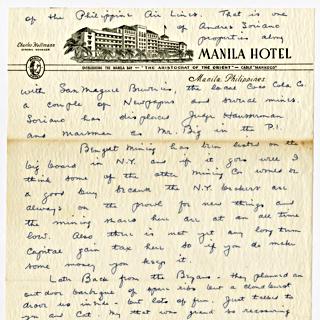 of the Philippine Air Lines. That is one
of Andres Soriano
properties along
Charles Hollmann
MANILA HOTEL
OVERLOOKING THE MANILA BAY - "THE ARISTOCRAT OF THE ORIENT" - CABLE "MANHOCO"
Manila Philippines
with San Miguel Breweries, the local Coca Cola Co.
a couple of Newspapers and several mines.
Soriano has displaced Judge Hausserman
and Marsman as Mr. Big in the P.I.
Benguet Mining has been listed on the
big board in N.Y. and if it goes well I
think some of the other Mining Co would be
a good buy because the N.Y. brokers are
always on the prowl for new things and
the mining shares here are at an all time
low. Also there is not yet any long term
Capital gain tax here so if you do make
some money you keep it.
Late Back from the Bryans - they planned an
out door barbeque of spare ribs but a cloud burst
drove us inside - but lots of fun. Just talked to
you and Cat. My that was grand so reassuring